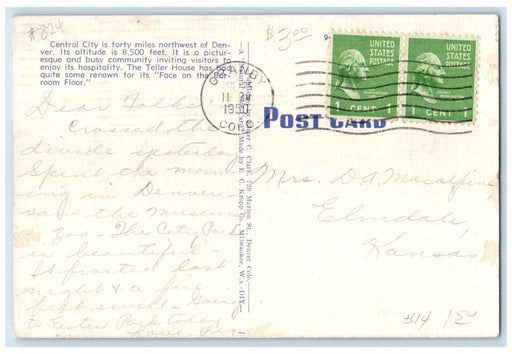 #824
$3.00
Central City is forty miles northwest of Den-
ver. Its altitude is 8,500 feet. It is a pictur-
esque and busy community inviting visitors to
enjoy its hospitality. The Teller House has had
quite some renown for its "Face on the Bar-
room Floor."
9.
UNITED STATES POSTAGE
1 CENT 1
UNITED STATES POSTAGE
1 CENT 1
GRANBY
11 AM
1950
COLO
POST CARD
Clark, 739 Marion St., Denver Colo.
Made by E. C. Kropp Co., Milwaukee, Wis.
Dear Folks,
Crossed the
divide yesterday
Spent the morn
ing in Denver
saw the Museum
& Zoo - The City Park
is beautiful -
It frosted last
night & a fire
felt swell - Going
to Estes Park today
Love,
Mrs. D. A. Macalpine
Elmdale
Kansas
#14 150